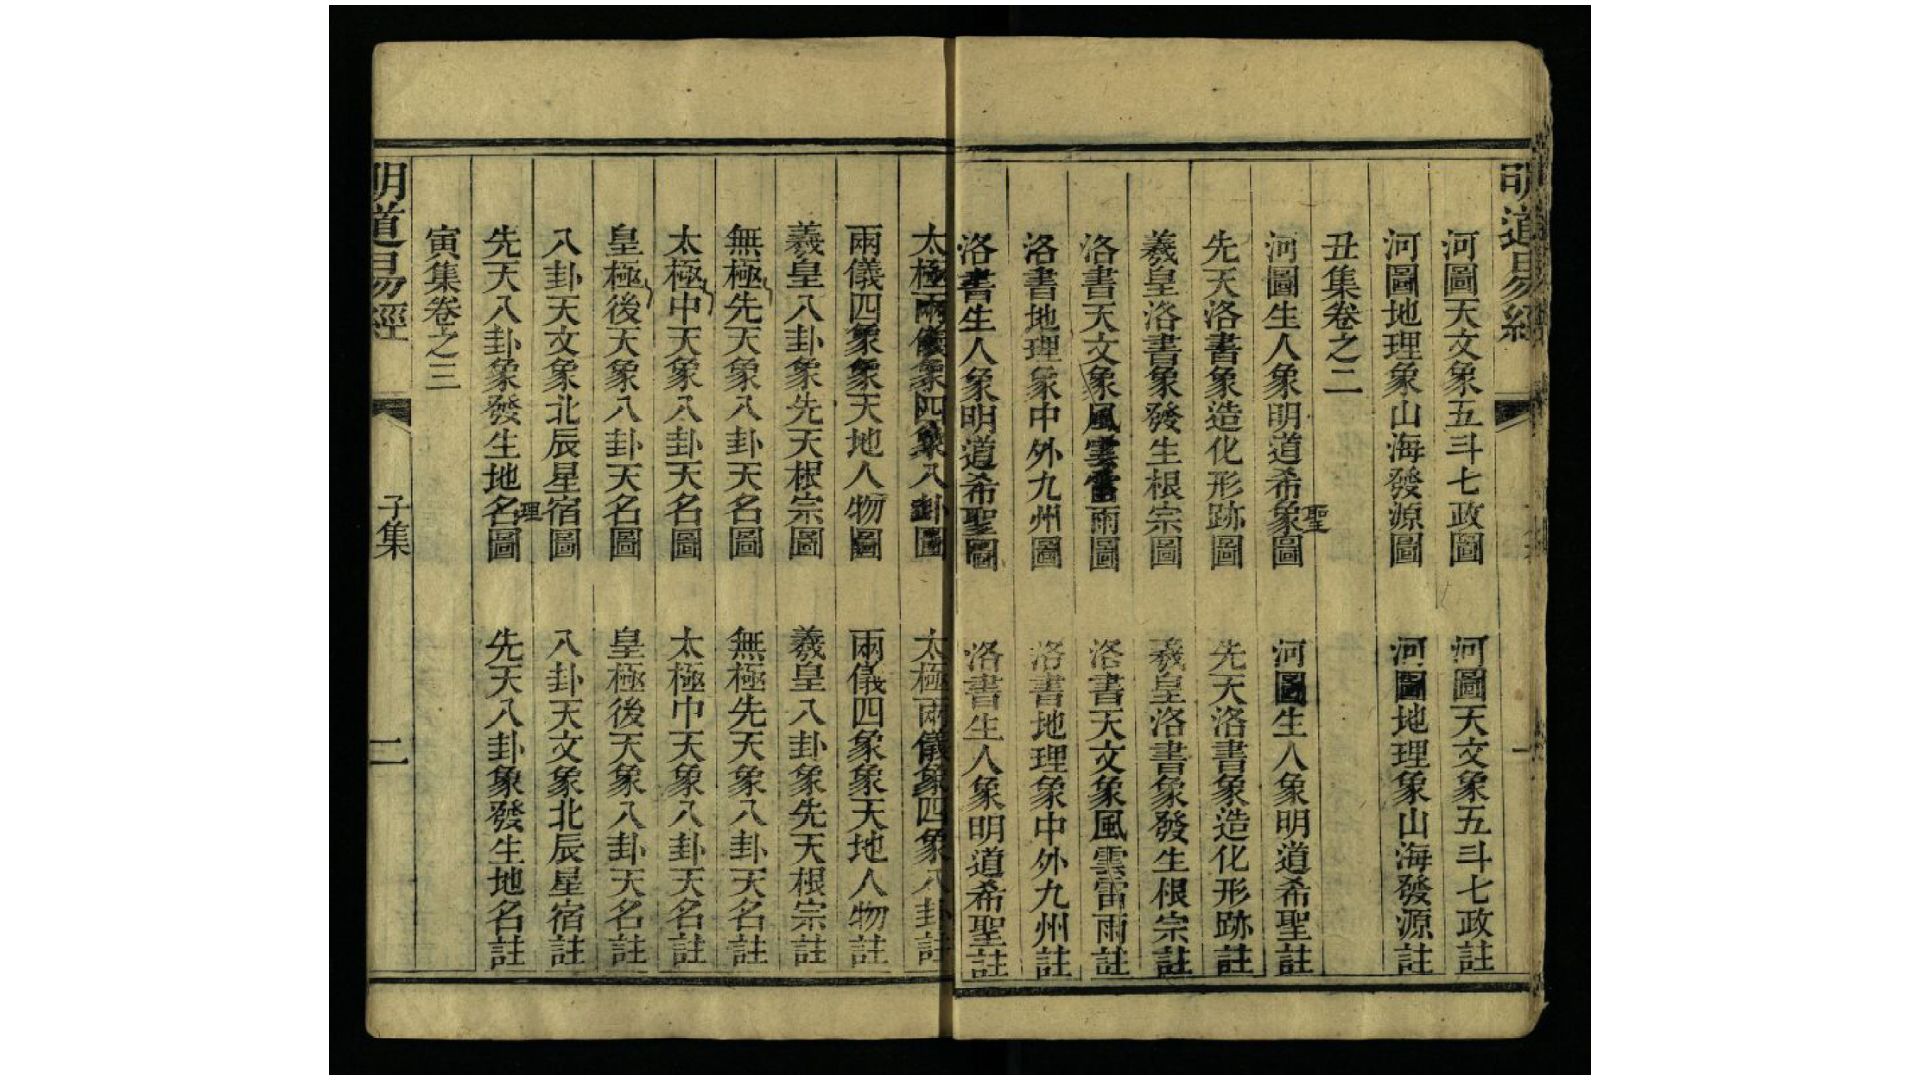 明道易經
河圖天文象五斗七政圖 河圖天文象五斗七政註
河圖地理象山海發源圖 河圖地理象山海發源註
丑集卷之二
河圖生人象明道希象圖 河圖生人象明道希聖註
聖
先天洛書象造化形跡圖 先天洛書象造化形跡註
羲皇洛書象發生根宗圖 羲皇洛書象發生根宗註
洛書天文象風雲雷雨圖 洛書天文象風雲雷雨註
洛書地理象中外九州圖 洛書地理象中外九州註
洛書生人象明道希聖圖 洛書生人象明道希聖註
太極兩儀象四象八卦圖 太極兩儀象四象八卦註
兩儀四象象天地人物圖 兩儀四象象天地人物註
羲皇八卦象先天根宗圖 羲皇八卦象先天根宗註
無極先天象八卦天名圖 無極先天象八卦天名註
太極中天象八卦天名圖 太極中天象八卦天名註
皇極後天象八卦天名圖 皇極後天象八卦天名註
八卦天文象北辰星宿圖 八卦天文象北辰星宿註
理
先天八卦象發生地名圖 先天八卦象發生地名註
寅集卷之三
明道易經 子集 二